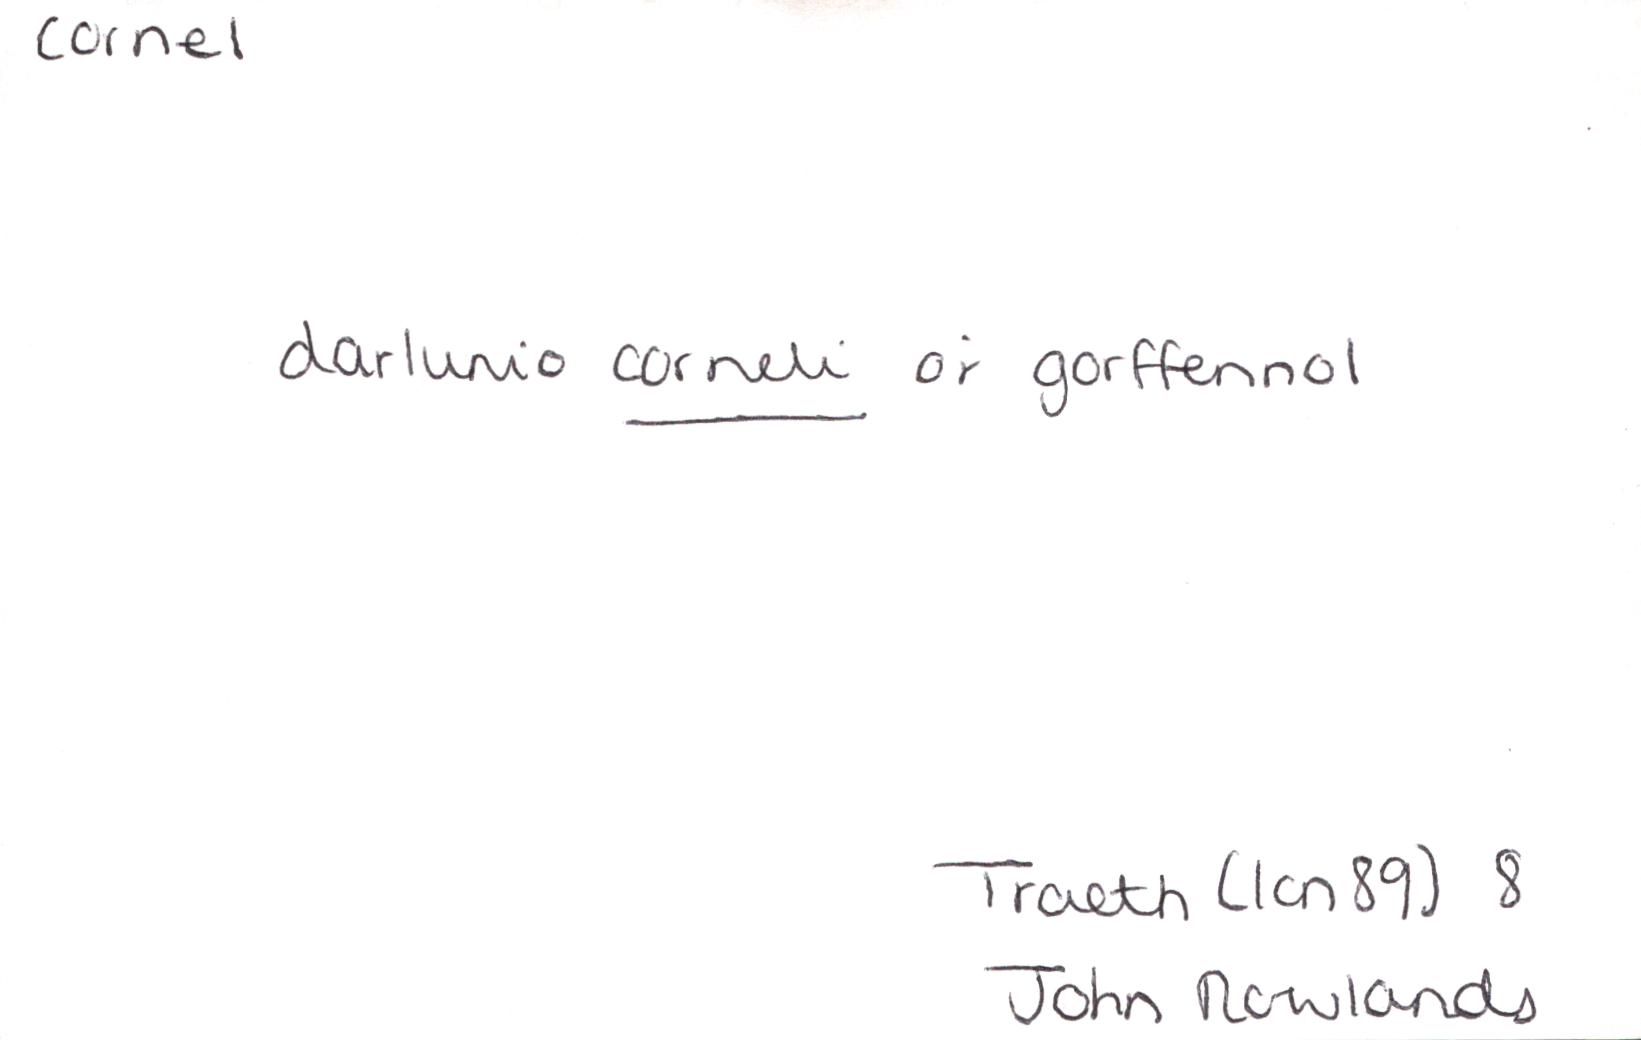 cornel
darlunio corneli o'r gorffennol
Traeth (Ion 89) 8
John Rowlands